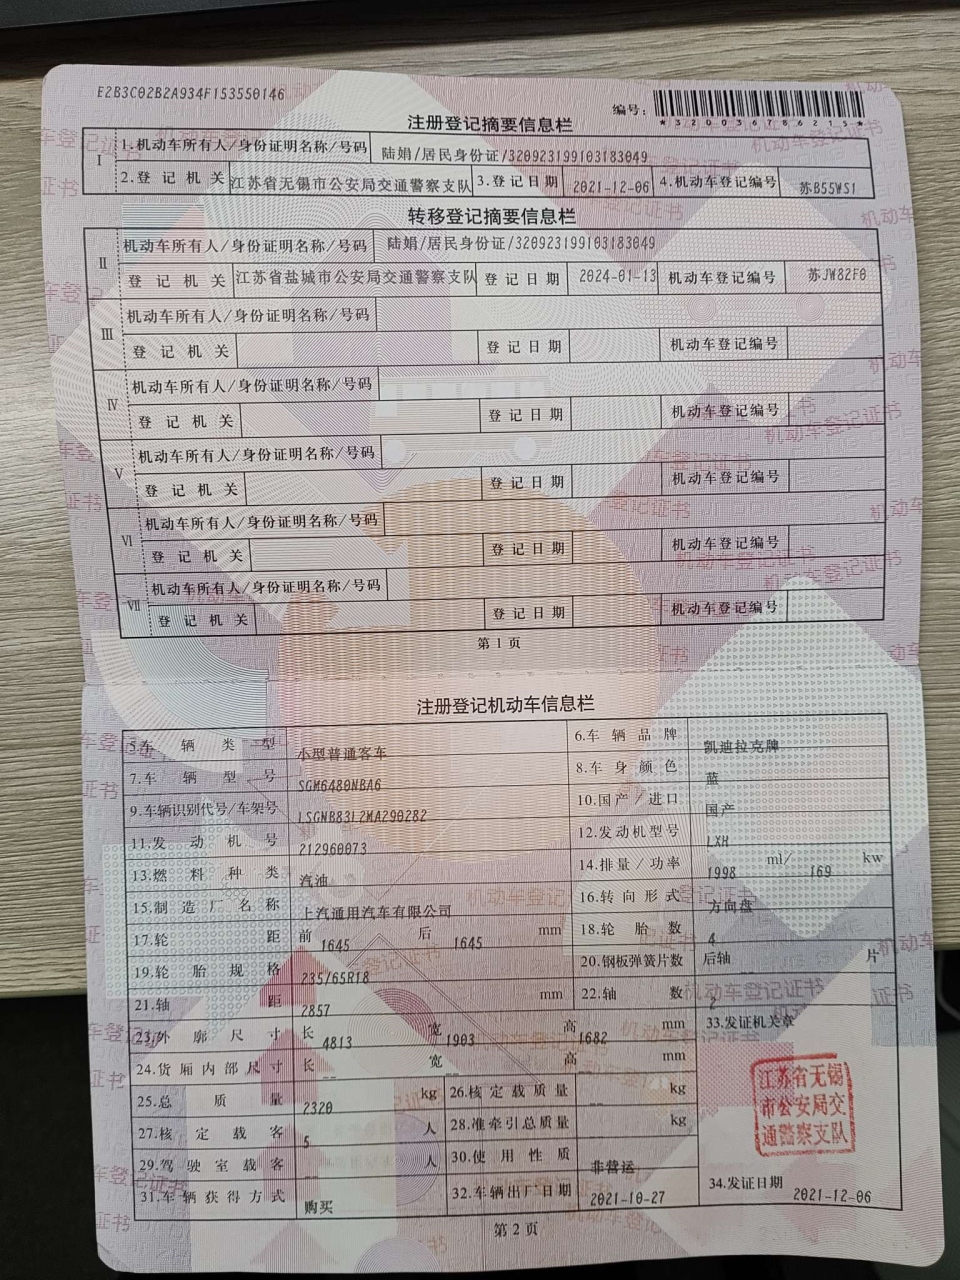 E2B3C02B2A934F153550146
编号：
*320036786215*
注册登记摘要信息栏
I 1.机动车所有人/身份证明名称/号码 陆娟/居民身份证/320923199103183049
2.登记机关 江苏省无锡市公安局交通警察支队 3.登记日期 2021-12-06 4.机动车登记编号 苏B55WS1
转移登记摘要信息栏
II 机动车所有人/身份证明名称/号码 陆娟/居民身份证/320923199103183049
登记机关 江苏省盐城市公安局交通警察支队 登记日期 2024-01-13 机动车登记编号 苏JW82F0
III 机动车所有人/身份证明名称/号码
登记机关 登记日期 机动车登记编号
IV 机动车所有人/身份证明名称/号码
登记机关 登记日期 机动车登记编号
V 机动车所有人/身份证明名称/号码
登记机关 登记日期 机动车登记编号
VI 机动车所有人/身份证明名称/号码
登记机关 登记日期 机动车登记编号
VII 机动车所有人/身份证明名称/号码
登记机关 登记日期 机动车登记编号
第1页
注册登记机动车信息栏
5.车辆类型 小型普通客车 6.车辆品牌 凯迪拉克牌
7.车辆型号 SGM6480NBA6 8.车身颜色 蓝
9.车辆识别代号/车架号 LSGNB83L2MA290282 10.国产/进口 国产
11.发动机号 212960073 12.发动机型号 LXH
13.燃料种类 汽油 14.排量/功率 1998 ml/ 169 kw
15.制造厂名称 上汽通用汽车有限公司 16.转向形式 方向盘
17.轮距 前 1645 后 1645 mm 18.轮胎数 4
19.轮胎规格 235/65R18 20.钢板弹簧片数 后轴 -- 片
21.轴距 2857 mm 22.轴数 2
23.外廓尺寸 长 4813 宽 1903 高 1682 mm 33.发证机关章
24.货厢内部尺寸 长 -- 宽 -- 高 -- mm
江苏省无锡
市公安局交
通警察支队
25.总质量 2320 kg 26.核定载质量 -- kg
27.核定载客 5 人 28.准牵引总质量 -- kg
29.驾驶室载客 -- 人 30.使用性质 非营运
31.车辆获得方式 购买 32.车辆出厂日期 2021-10-27 34.发证日期 2021-12-06
第2页